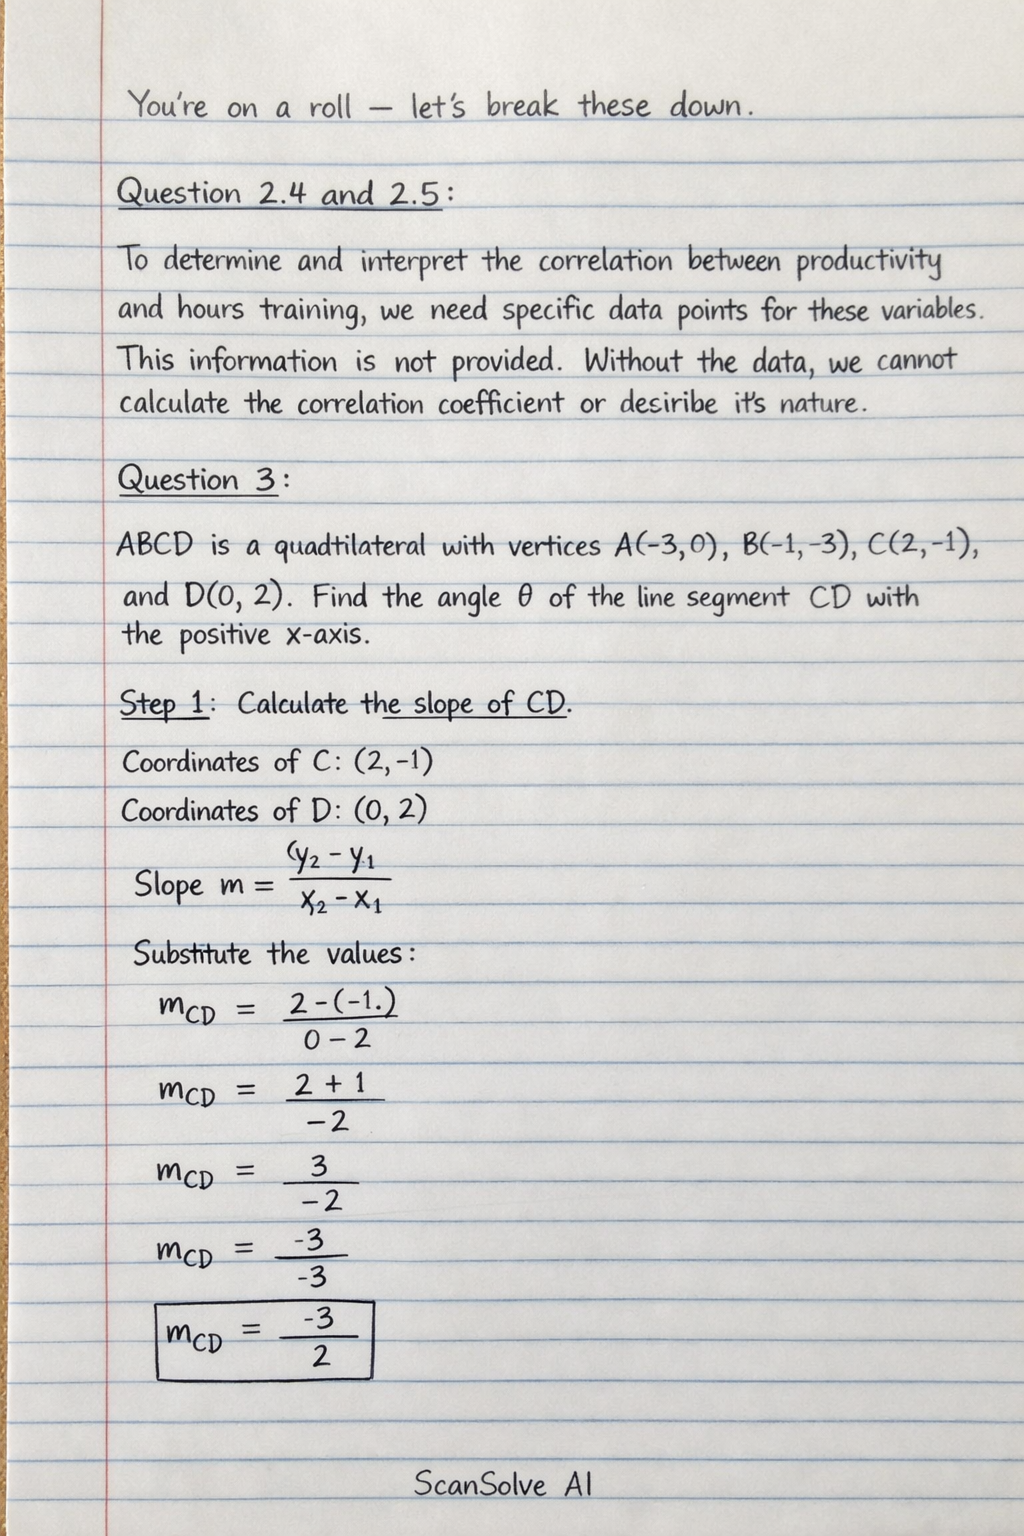 You're on a roll — let's break these down.
Question 2.4 and 2.5:
To determine and interpret the correlation between productivity
and hours training, we need specific data points for these variables.
This information is not provided. Without the data, we cannot
calculate the correlation coefficient or desiribe it's nature.
Question 3:
ABCD is a quadtilateral with vertices A(-3,0), B(-1,-3), C(2,-1),
and D(0, 2). Find the angle θ of the line segment CD with
the positive x-axis.
Step 1: Calculate the slope of CD.
Coordinates of C: (2,-1)
Coordinates of D: (0, 2)
Slope m = (y₂ - y₁ / x₂ - x₁
Substitute the values:
m_CD = 2-(-1.) / 0 - 2
m_CD = 2 + 1 / -2
m_CD = 3 / -2
m_CD = -3 / -3
m_CD = -3 / 2
ScanSolve AI